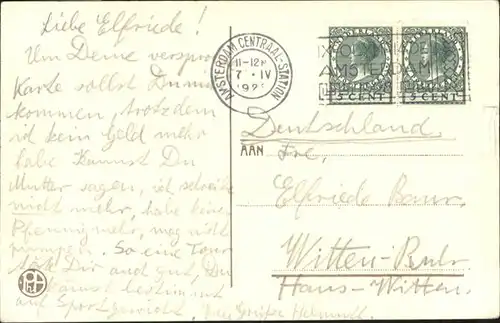 Liebe Elfriede!
Um Deine verspro
Karte sollst Du nu
kommen, trotzdem
ich kein Geld mehr
habe. Kannst Du
Mutter sagen, ich schreibe
nicht mehr, habe keine
Pfennig mehr, mag nicht
pumpen. So eine Tour
Dir and gut, Du
kannst bestimmt
auf Sport
Grüße Helmut.
AMSTERDAM CENTRAAL-STATION
11-12
7 IV
192
AMSTERDAM
5 CENT
5 CENT
Deutschland
AAN
Elfriede Baur
Witten-Ruhr
Haus-Witten.